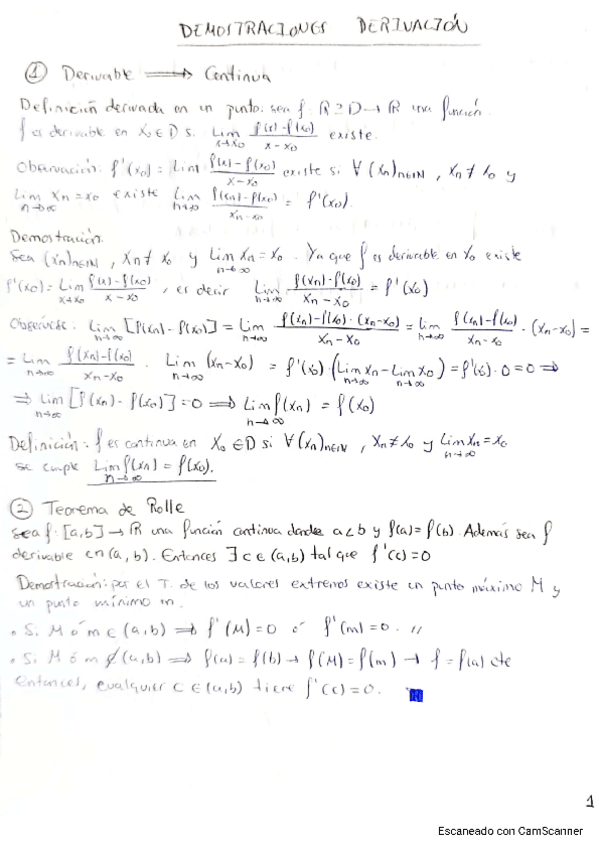 DEMOSTRACIONES DERIVACIÓN
① Derivable ⟹ Continua
Definición derivada en un punto: sea f: R ⊇ D → R una función.
f es derivable en x₀ ∈ D si lim_{x→x₀} (f(x)-f(x₀))/(x-x₀) existe.
Observación: f'(x₀) = lim (f(x)-f(x₀))/(x-x₀) existe si ∀ (xₙ)n∈N, xₙ ≠ x₀ y
lim_{n→∞} xₙ = x₀ existe lim_{n→∞} (f(xₙ)-f(x₀))/(xₙ-x₀) = f'(x₀).
Demostración:
Sea (xₙ)n∈N, xₙ ≠ x₀ y lim_{n→∞} xₙ = x₀. Ya que f es derivable en x₀ existe
f'(x₀) = lim_{x→x₀} (f(x)-f(x₀))/(x-x₀), es decir lim_{n→∞} (f(xₙ)-f(x₀))/(xₙ-x₀) = f'(x₀)
Obsérvese: lim_{n→∞} [f(xₙ)-f(x₀)] = lim_{n→∞} (f(xₙ)-f(x₀)·(xₙ-x₀))/(xₙ-x₀) = lim_{n→∞} (f(xₙ)-f(x₀))/(xₙ-x₀) · (xₙ-x₀) =
= lim_{n→∞} (f(xₙ)-f(x₀))/(xₙ-x₀) · lim_{n→∞} (xₙ-x₀) = f'(x₀)·(lim_{n→∞} xₙ - lim_{n→∞} x₀) = f'(x₀)·0 = 0 ⟹
⟹ lim_{n→∞} [f(xₙ)-f(x₀)] = 0 ⟹ lim_{n→∞} f(xₙ) = f(x₀)
Definición: f es continua en x₀ ∈ D si ∀(xₙ)n∈N, xₙ ≠ x₀ y lim_{n→∞} xₙ = x₀
se cumple lim_{n→∞} f(xₙ) = f(x₀).
② Teorema de Rolle
Sea f: [a,b] → R una función continua donde a<b y f(a) = f(b). Además sea f
derivable en (a,b). Entonces ∃ c ∈ (a,b) tal que f'(c)=0
Demostración: por el T. de los valores extremos existe un punto máximo M y
un punto mínimo m.
• Si M ó m ∈ (a,b) ⟹ f'(M)=0 ó f'(m)=0. //
• Si M ó m ∉ (a,b) ⟹ f(a) = f(b) → f(M) = f(m) → f = f(a) cte
Entonces, cualquier c ∈ (a,b) tiene f'(c)=0.
1
Escaneado con CamScanner